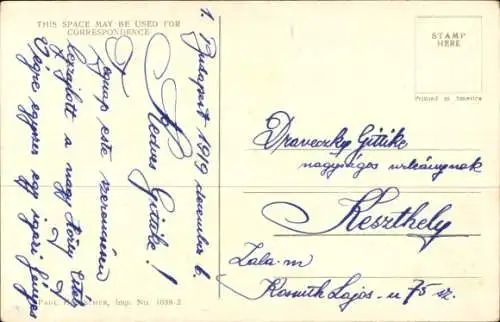 THIS SPACE MAY BE USED FOR
CORRESPONDENCE
1. Budapest 1919 december 6.
Kedves Gittike!
Tegnap este szerencsésen
lezajlott a nagy
Végre egyszer egy igazi
PAUL Imp. No. 1038-2.
STAMP
HERE
Printed in America
Draveczky Gittike
nagyságos urleánynak
Keszthely
Zala-m
Kossuth Lajos-u 75 sz.